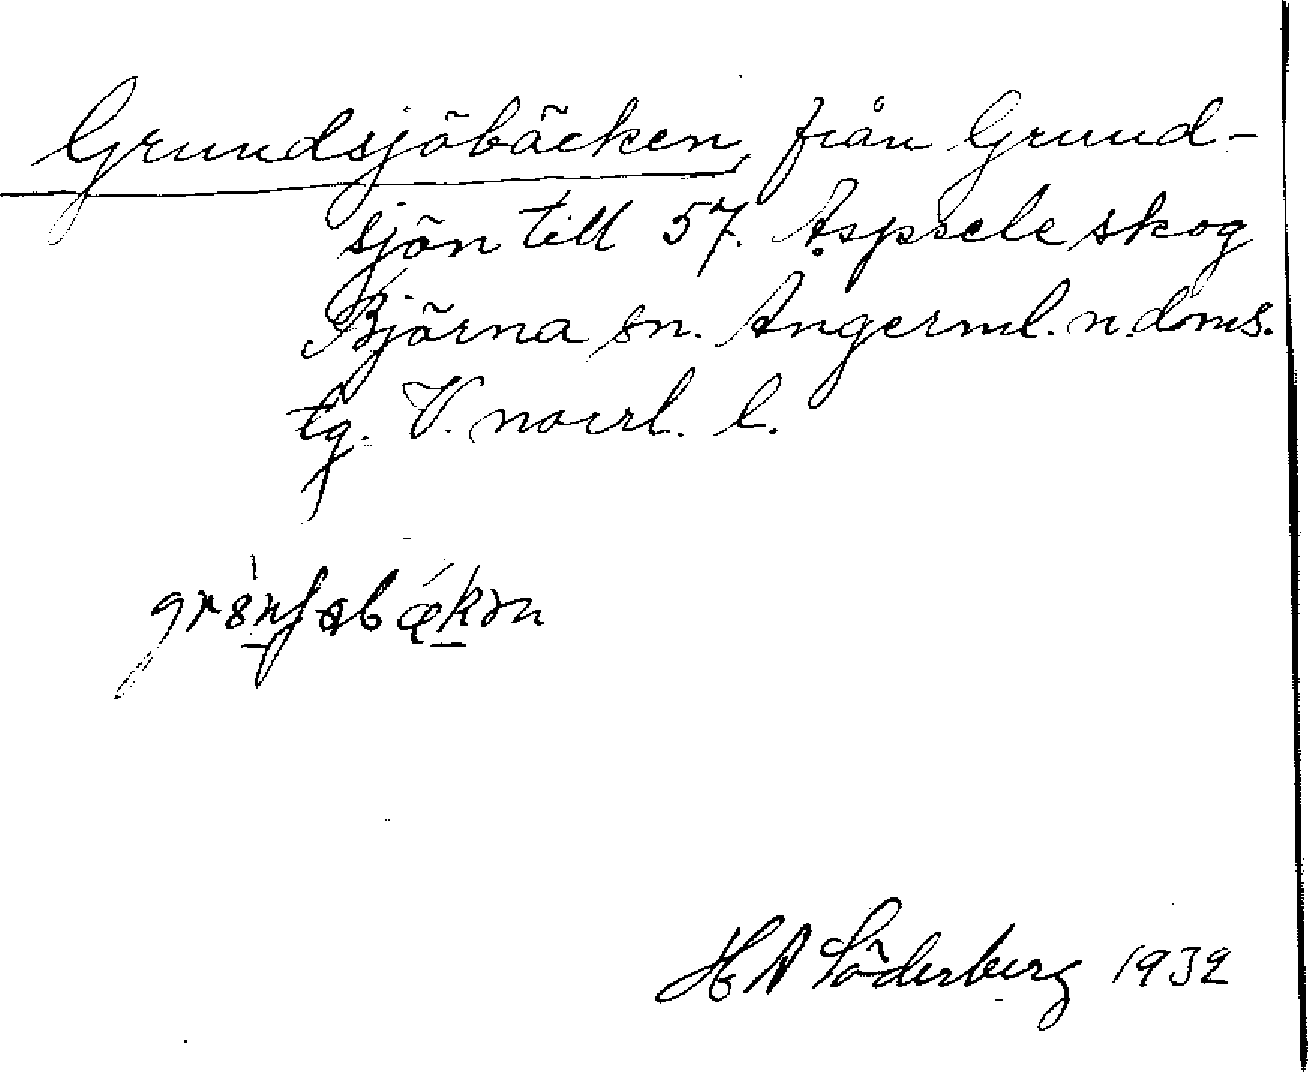 Grundsjöbäcken, från Grund-
sjön till 57. Aspsele skog
Björna sn. Ångerml. n. doms.
tg. V. norrl. l.
H A Söderberg 1932